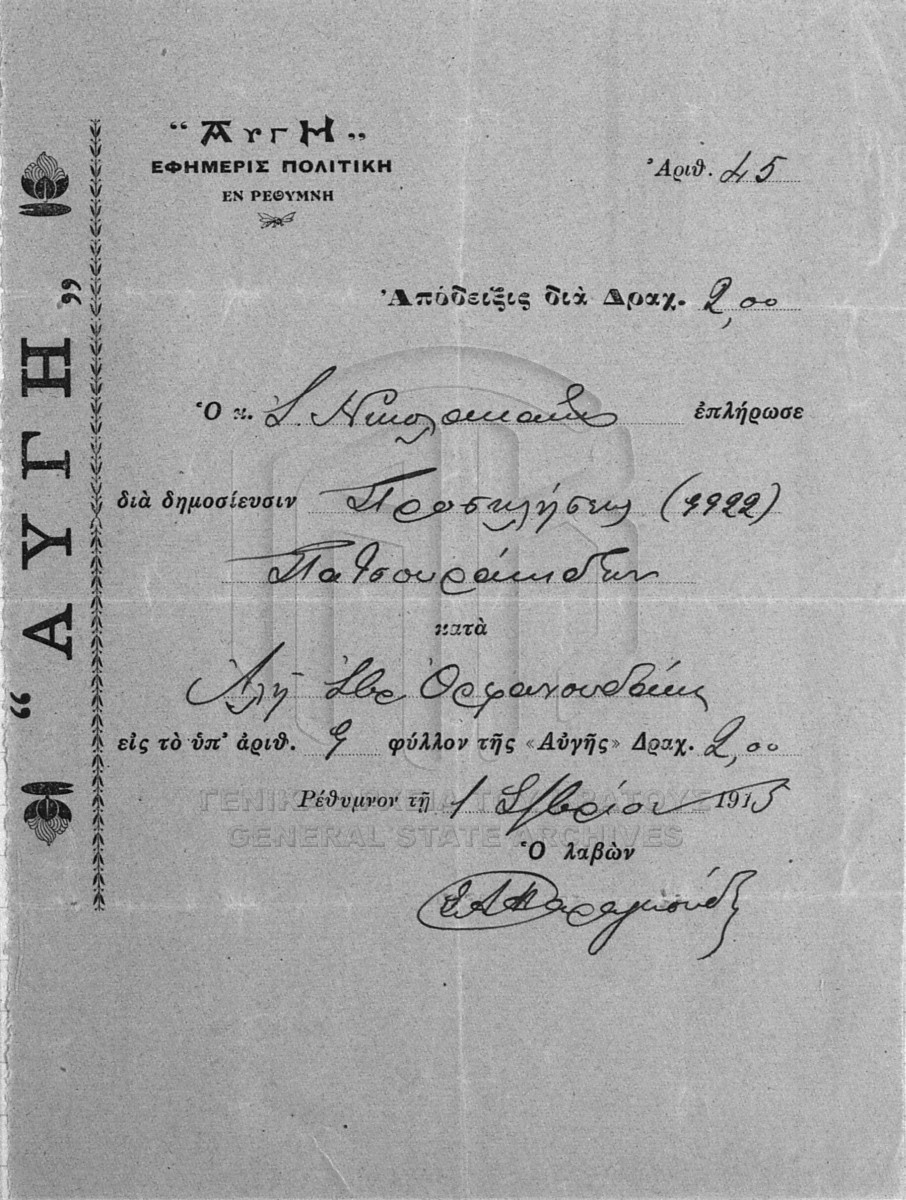 “ ΑΥΓΗ „
ΕΦΗΜΕΡΙΣ ΠΟΛΙΤΙΚΗ
ΕΝ ΡΕΘΥΜΝΗ
Ἀριθ. 45
Ἀπόδειξις διὰ Δραχ. 2,00
Ὁ κ. Νικολακάκης ἐπλήρωσε
διὰ δημοσίευσιν Προσκλήσεως (9922)
Πατσουράκηδων
κατὰ
Ἀλῆ Ὀρφανουδάκη
εἰς τὸ ὑπ' ἀριθ. 9 φύλλον τῆς «Αὐγῆς» Δραχ. 2,00
Ῥέθυμνον τῇ 1 1913
Ὁ λαβὼν
“ΑΥΓΗ„
ΓΕΝΙΚΑ ΑΡΧΕΙΑ ΤΟΥ ΚΡΑΤΟΥΣ
GENERAL STATE ARCHIVES